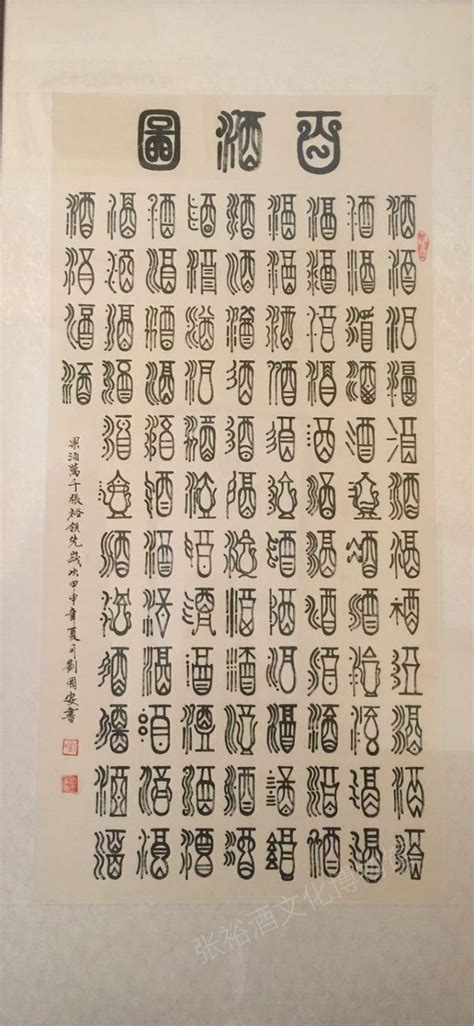 百酒圖
酒酒酒酒酒酒酒酒酒酒酒酒
酒酒酒酒酒酒酒酒酒酒酒酒
酒酒酒酒酒酒酒酒酒酒酒酒
酒酒酒酒酒酒酒酒酒酒酒酒
酒酒酒酒酒酒酒酒酒酒酒酒
酒酒酒酒酒酒酒酒酒酒酒酒
酒酒酒酒酒酒酒酒酒酒酒酒
酒酒酒酒酒酒酒酒酒酒酒酒
酒酒酒酒
果酒萬千張裕領先歲次甲申年夏月劉國安書
张裕酒文化博